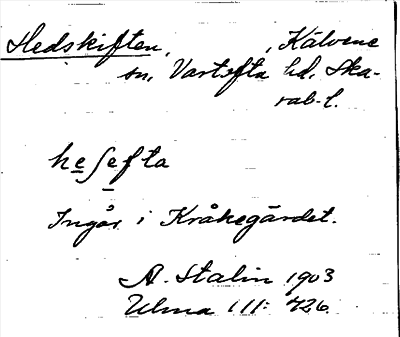 Hedskiften, , Kälvene
sn, Vartofta hd, Ska-
rab. l.
he ſefta
Ingår i Kråkegärdet.
A. Stalin 1903
Ulma 111: 726.